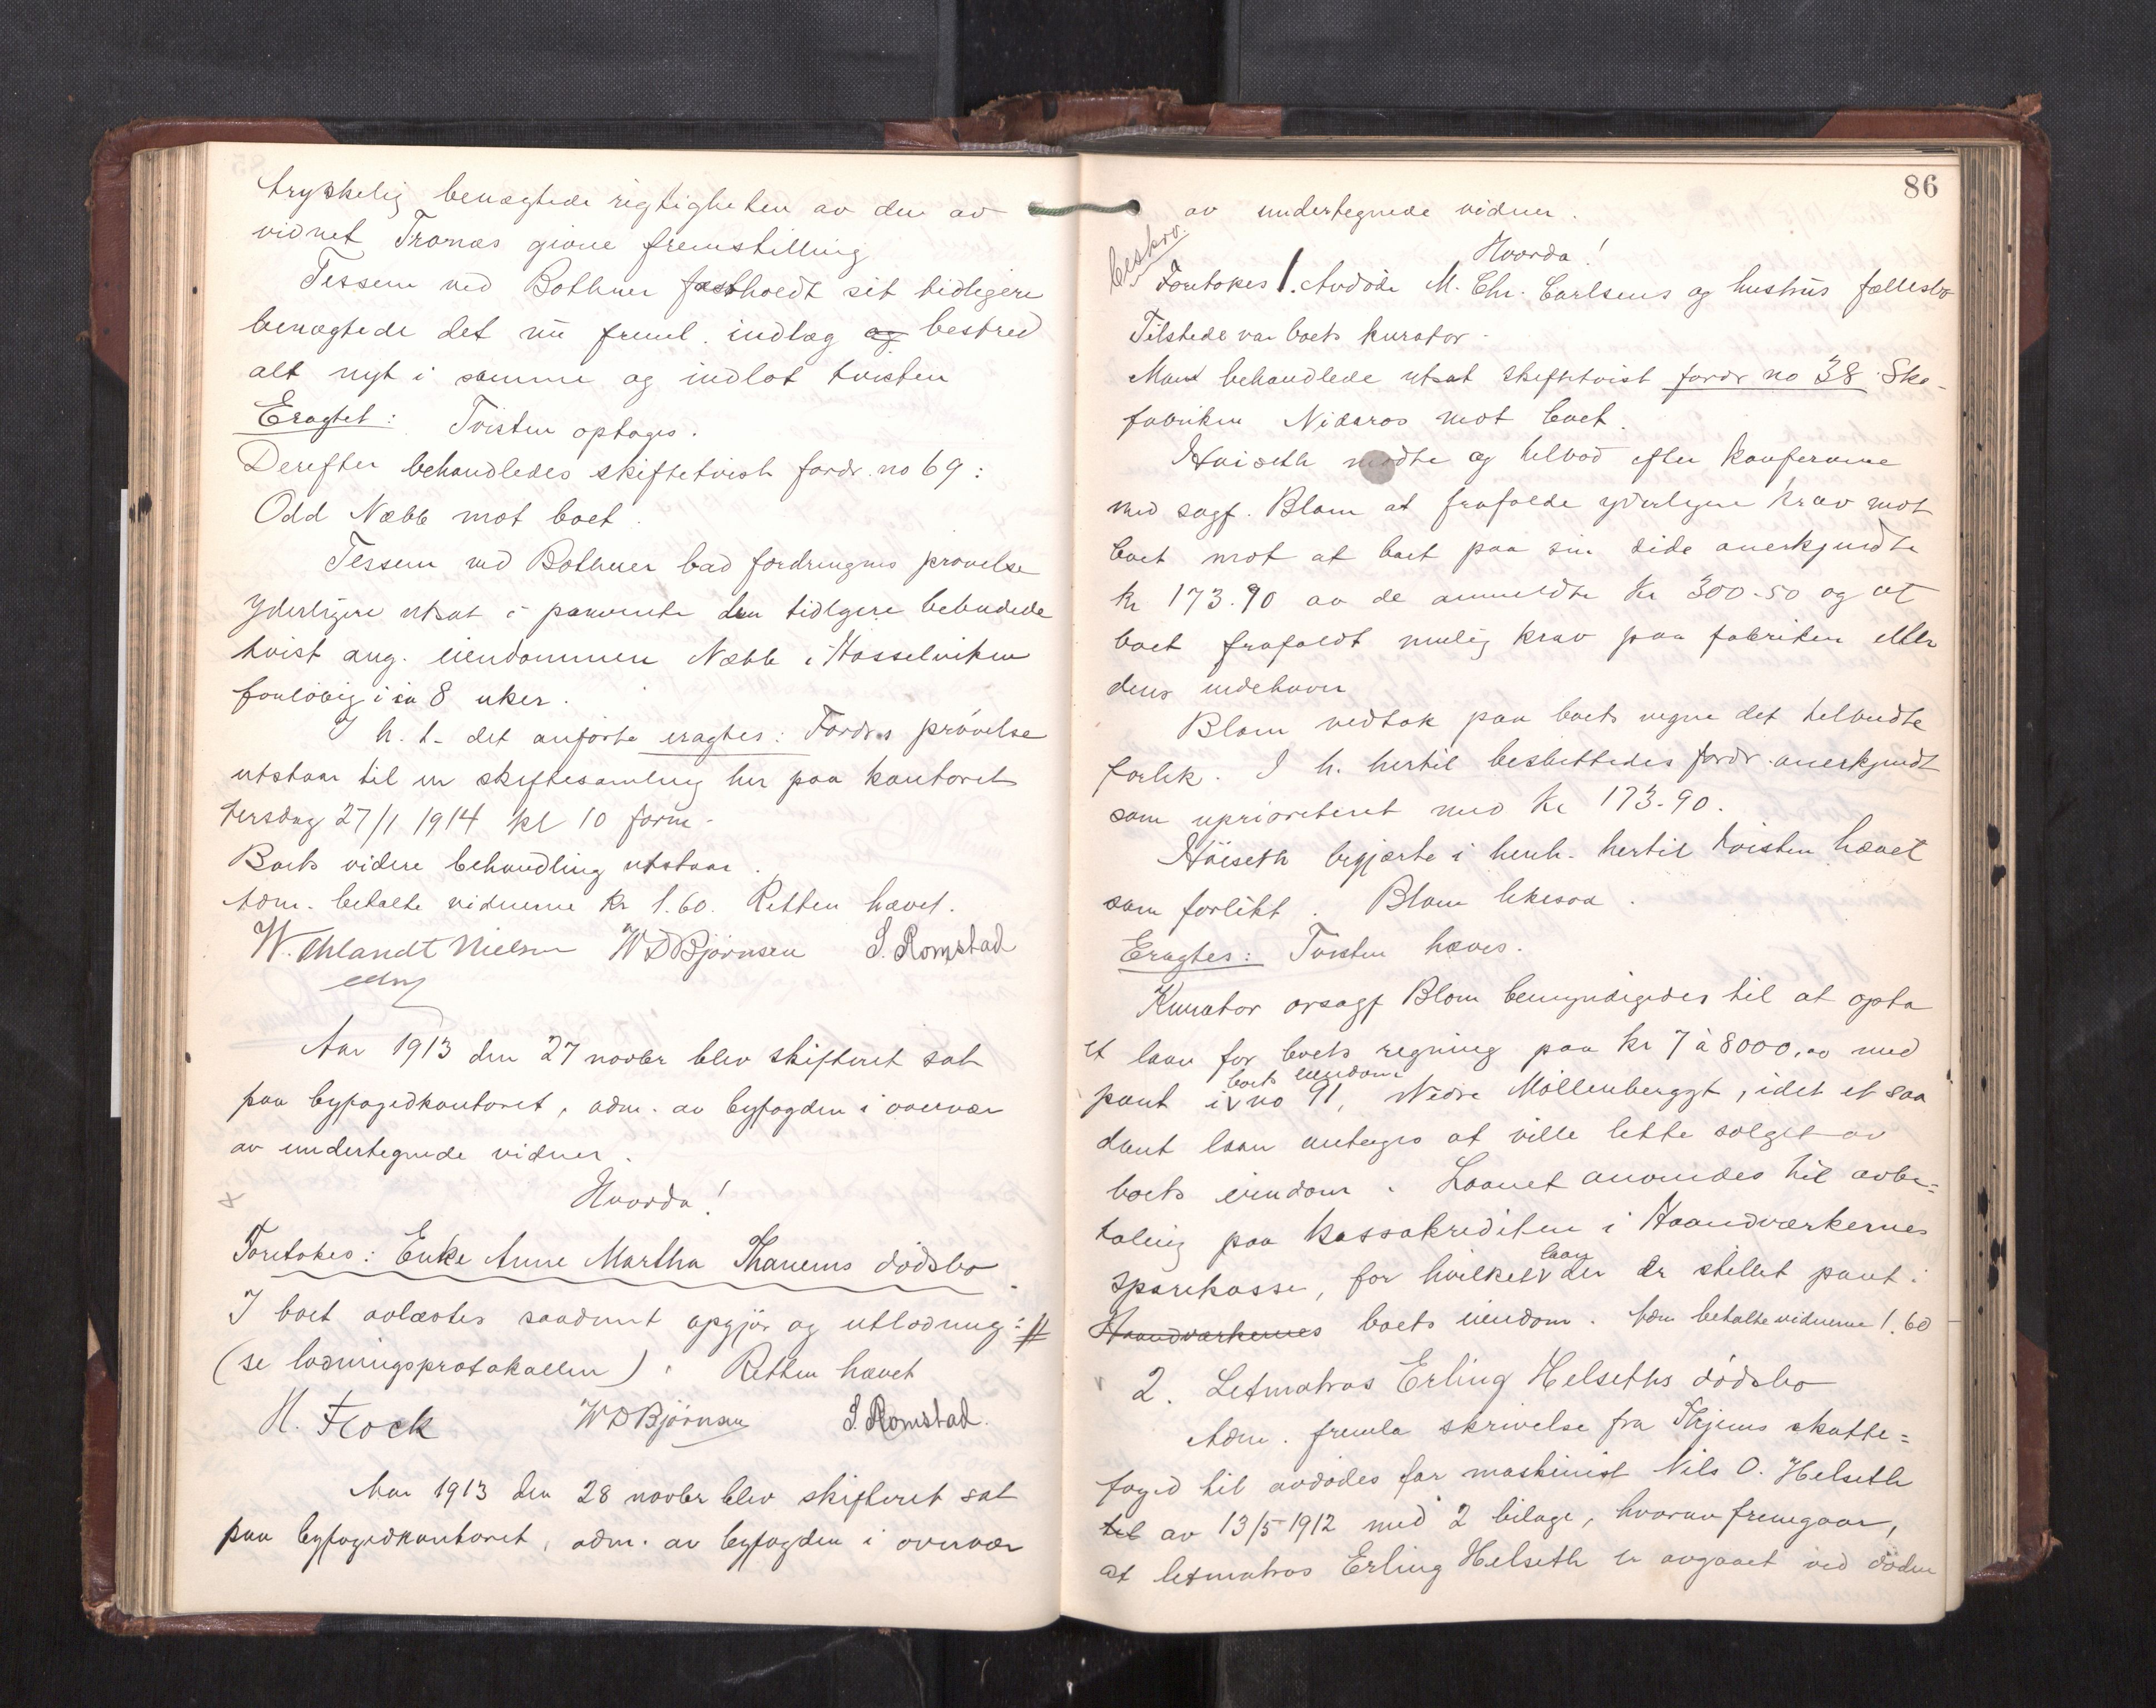 trykkelig benægtede rigtigheten av den av
vidnet Tranæs givne fremstilling
Tessem ved Bothner fastholdt sit tidligere
benægtede det nu freml. indlæg og bestred
alt nyt i samme og indlot tvisten
Eragtet: Tvisten optages.
Derefter behandledes skiftetvist fordr. no 69:
Odd Næbb mot boet.
Tessem ved Bothner bad fordringens prøvelse
yderligere utsat i paavente den tidligere bebudede
tvist ang. eiendommen Næbb i Hasselviken
foreløbig i ca 8 uker.
I h. t. det anførte eragtes: Fordr.s prøvelse
utstaar til en skiftesamling her paa kontoret
tirsdag 27/1 1914 kl 10 form.
Boets videre behandling utstaar.
Adm. betalte vidnerne kr 1.60. Retten hævet.
W. Uhlandt Nielsen W D Bjørnsen S. Romstad
Aar 1913 den 27 novbr blev skifteret sat
paa byfogedkontoret, adm. av byfogden i overvær
av undertegnede vidner.
Hvorda!
x
Foretokes: Enke Anne Martha Thanems dødsbo.
I boet avlæstes saadant opgjør og utlodning: #
(se lodningsprotokollen). Retten hævet
H. Flock W D Bjørnsen S. Romstad.
Aar 1913 den 28 novbr blev skifteret sat
paa byfogedkontoret, adm. av byfogden i overvær
86
av undertegnede vidner.
Hvorda!
beskrv.
Foretokes 1. Avdøde M. Chr. Carlsens og hustrus fællesbo
Tilstede var boets kurator.
Man behandlede utsat skiftetvist fordr no 38 Sko-
fabriken Nidaros mot boet.
Høiseth mødte og tilbød efter konferanse
med sagf. Blom at frafalde yderligere krav mot
boet mot at boet paa sin side anerkjendte
kr 173.90 av de anmeldte kr 300.50 og at
boet frafaldt mulig krav paa fabriken eller
dens indehaver
Blom vedtok paa boets vegne det tilbudte
forlik. I h. hertil besluttedes fordr. anerkjendt
som uprioritert med kr 173.90.
Høiseth begjærte i henh. hertil tvisten hævet
som forlikt. Blom likesaa.
Eragtes: Tvisten hæves.
Kurator orsagf Blom bemyndigedes til at opta
et laan for boets regning paa kr 7 à 8000,00 med
pant i boets eiendom no 91, Nedre Møllenberggt, idet et saa
dant laan antages at ville lette salget av
boets eiendom. Laanet anvendes til avbe=
taling paa kassakrediten i Haandværkernes
Sparekasse, for hvilket laan der er stillet pant i
Haandværkernes boets eiendom. Adm betalte vidnerne 1.60
2. Letmatros Erling Helseths dødsbo
Adm. fremla skrivelse fra Thjems skatte=
foged til avdødes far maskinist Nils O. Helseth
til av 13/5 1912 med 2 bilage, hvorav fremgaar,
at letmatros Erling Helseth er avgaaet ved døden